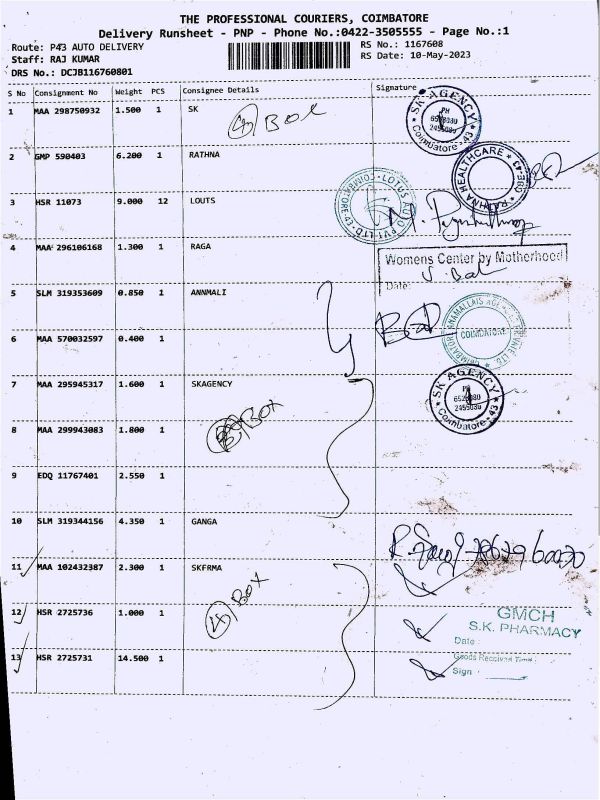 THE PROFESSIONAL COURIERS, COIMBATORE
Delivery Runsheet - PNP - Phone No.:0422-3505555 - Page No.:1
Route: P43 AUTO DELIVERY
RS No.: 1167608
Staff: RAJ KUMAR
RS Date: 10-May-2023
DRS No.: DCJB116760801
S No Consignment No Weight PCS Consignee Details Signature
1 MAA 298750932 1.500 1 SK
4 Box
SK AGENCY
PH
Coimbatore - 43
2 GMP 590403 6.200 1 RATHNA
RATHNA HEALTHCARE
CBE-43
3 HSR 11073 9.000 12 LOUTS
LOTUS PVT LTD
COIMBATORE-43
4 MAA 296106168 1.300 1 RAGA
Womens Center by Motherhood
Date:
5 SLM 319353609 0.850 1 ANNMALI
COIMBATORE ANAMALLAIS AGENCIES PRIVATE LTD.
COIMBATORE
6 MAA 570032597 0.400 1
7 MAA 295945317 1.600 1 SKAGENCY
SK AGENCY
PH
Coimbatore - 43
8 MAA 299943083 1.800 1
Box
9 EDQ 11767401 2.550 1
10 SLM 319344156 4.350 1 GANGA
11 MAA 102432387 2.300 1 SKFRMA
4 Box
12 HSR 2725736 1.000 1
GMCH
S.K. PHARMACY
Date
13 HSR 2725731 14.500 1
Goods Received Time
Sign